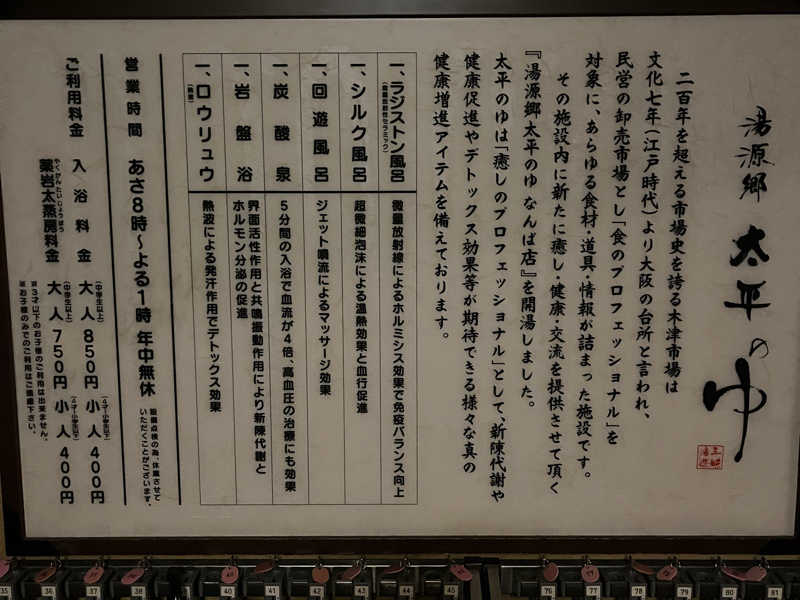 湯源郷 太平のゆ
二百年を超える市場史を誇る木津市場は
文化七年(江戸時代)より大阪の台所と言われ、
民営の卸売市場とし「食のプロフェッショナル」を
対象に、あらゆる食材・道具・情報が詰まった施設です。
その施設内に新たに癒し・健康・交流を提供させて頂く
『湯源郷太平のゆ なんば店』を開湯しました。
太平のゆは「癒しのプロフェッショナル」として、新陳代謝や
健康促進やデトックス効果等が期待できる様々な真の
健康増進アイテムを備えております。
一、ラジストン風呂
微量放射線によるホルミシス効果で免疫バランス向上
一、シルク風呂
超微細泡沫による温熱効果と血行促進
一、回遊風呂
ジェット噴流によるマッサージ効果
一、炭酸泉
5分間の入浴で血流が4倍、高血圧の治療にも効果
一、岩盤浴
界面活性作用と共鳴振動作用により新陳代謝と
ホルモン分泌の促進
一、ロウリュウ
(熱波)
熱波による発汗作用でデトックス効果
営業時間 あさ8時〜よる1時 年中無休
設備点検の為、休業させて
いただくことがございます。
ご利用料金 入浴料金 大人 (中学生以上) 850円 小人 (4才〜小学生以下) 400円
薬岩太蒸房料金 やくがんたいじょうぼう 大人 (中学生以上) 750円 小人 (4才〜小学生以下) 400円
※3才以下のお子様のご利用は出来ません。
※お子様のみでのご利用はご遠慮下さい。
35 36 37 38 40 41 42 43 44 45 76 77 78 79 80 81